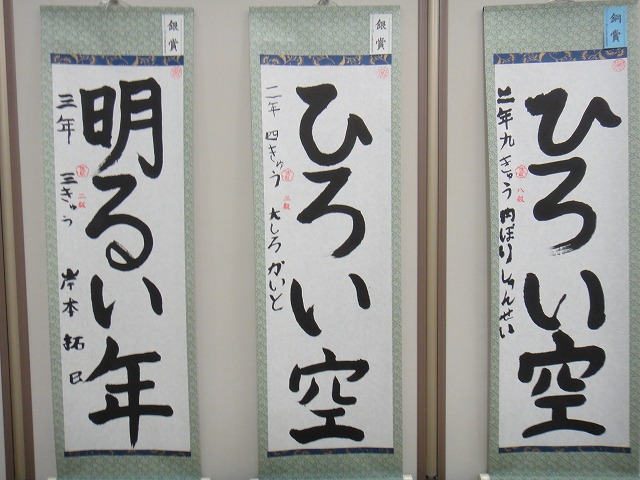 銀賞
明るい年
三年 三きゅう 岸本拓巳
二級
銀賞
ひろい空
二年 四きゅう 大しろかいと
三級
銅賞
ひろい空
二年 九きゅう 内ぼりしゅんせい
八級